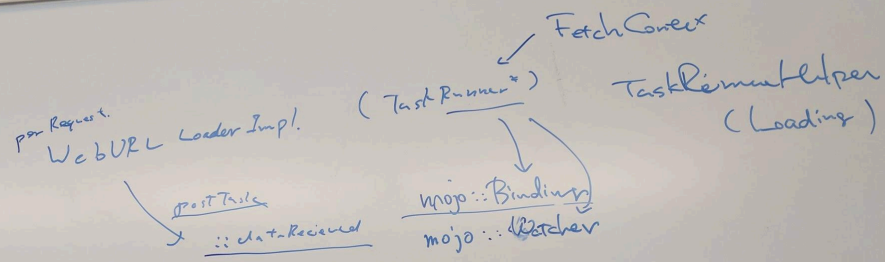 FetchContex
per Request.
WebURL Loader Impl.
( TaskRunner* )
TaskRunnerHelper
( Loading )
postTask
:: dataRecieved
mojo::Binding
mojo::Watcher